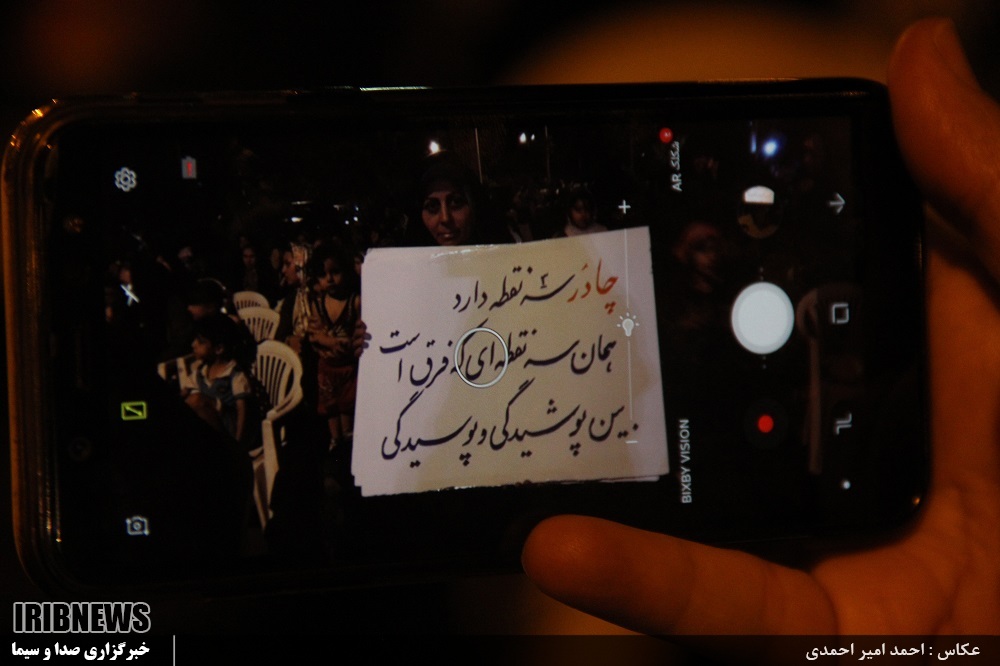 شکلک AR
چادر سه نقطه دارد
همان سه نقطه ای که فرق است
بین پوشیدگی و پوسیدگی
BIXBY VISION
IRIBNEWS
خبرگزاری صدا و سیما
عکاس : احمد امیر احمدی